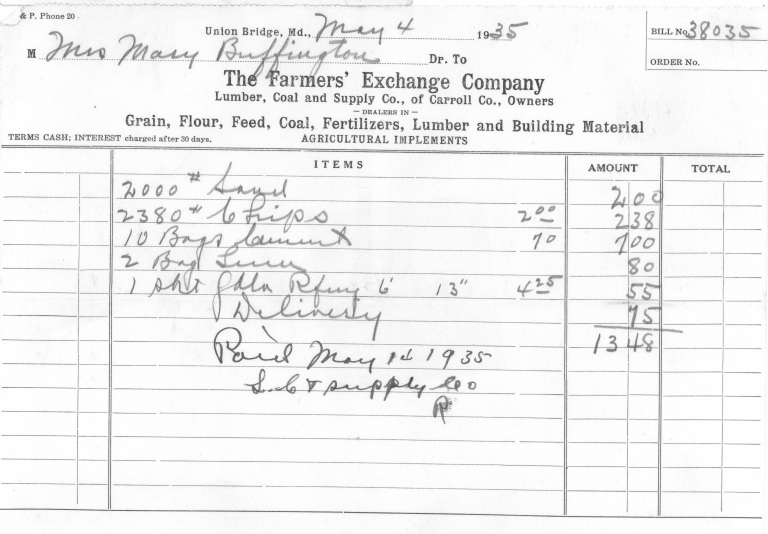 & P. Phone 20
Union Bridge, Md., May 4 1935
BILL No. 38035
M Mrs Mary Buffington Dr. To
ORDER No.
The Farmers' Exchange Company
Lumber, Coal and Supply Co., of Carroll Co., Owners
— DEALERS IN —
Grain, Flour, Feed, Coal, Fertilizers, Lumber and Building Material
TERMS CASH; INTEREST charged after 30 days. AGRICULTURAL IMPLEMENTS
ITEMS AMOUNT TOTAL
2000 # Sand 2 00
2380 # Chips 2 00 2 38
10 Bags Cement 70 7 00
2 Bag Lime 80
1 sht Galv Rfing 6' 13" 4 25 55
Delivery 75
13 48
Paid May 1935
L. C & supply Co
R